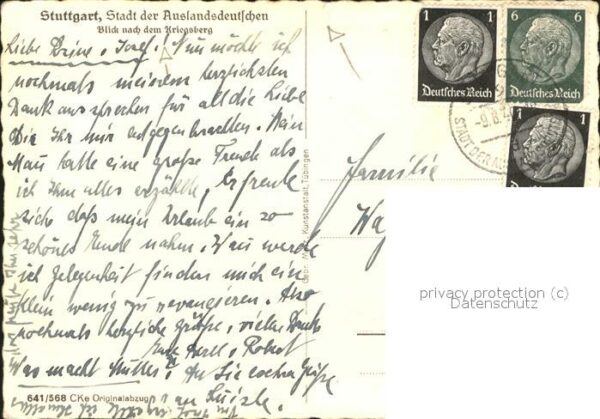 Stuttgart, Stadt der Auslandsdeutschen
Blick nach dem Kriegsberg
Liebe Josef. Nun möchte ich
nochmals meinen herzlichsten
Dank aussprechen für all die Liebe
Die Ihr mir entgegenbrachten. Mein
Mann hatte eine große Freude als
ich Ihm alles erzählte, Er freute
sich daß mein Urlaub ein so
schönes Ende nahm. Wann werde
ich Gelegenheit finden mich ein
klein wenig zu revangieren. Also
nochmals herzliche Grüße, vielen Dank
Robert
Was macht Mutter? An Sie Grüße
641/568 CKe Originalabzug
Gebr. Metz, Kunstanstalt, Tübingen
1 1
6 6
Deutsches Reich
Deutsches Reich
1
Familie
privacy protection (c)
Datenschutz